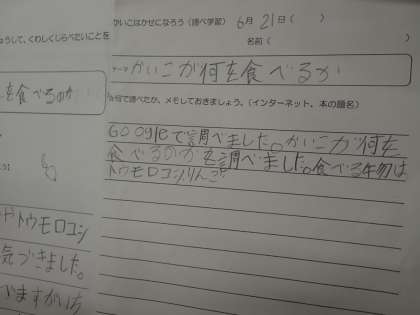 かいこはかせになろう(調べ学習) 6月21日( )
名前( )
テーマ かいこが何を食べるか
何で調べたか、メモしておきましょう。(インターネット、本の題名)
Googleで調べました。かいこが何を
食べるのかを調べました。食べる物は
トウモロコシりんご
ょうして、くわしくしらべたいことを
を食べるのか
トウモロコシ
気づきました。